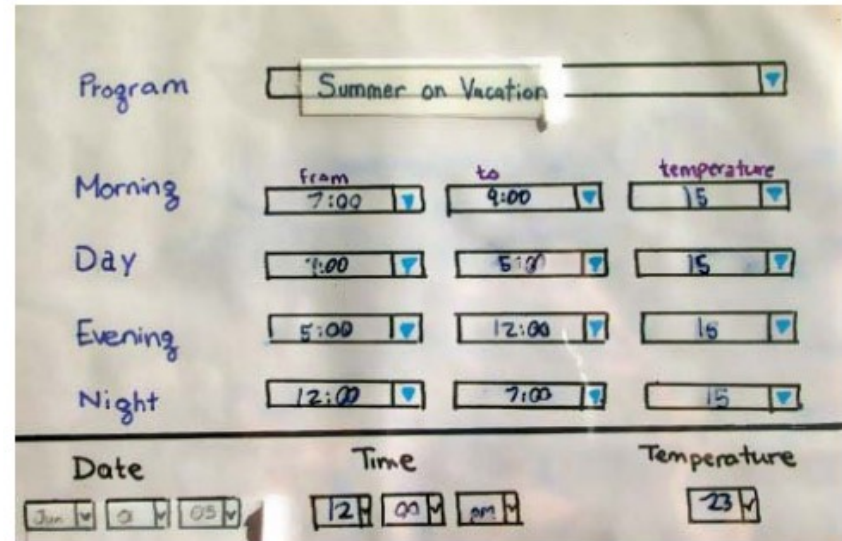 Program Summer on Vacation
from to temperature
Morning 7:00 9:00 15
Day 9:00 5:00 15
Evening 5:00 12:00 15
Night 12:00 7:00 15
Date Time Temperature
Jun 01 05 12 00 am 23